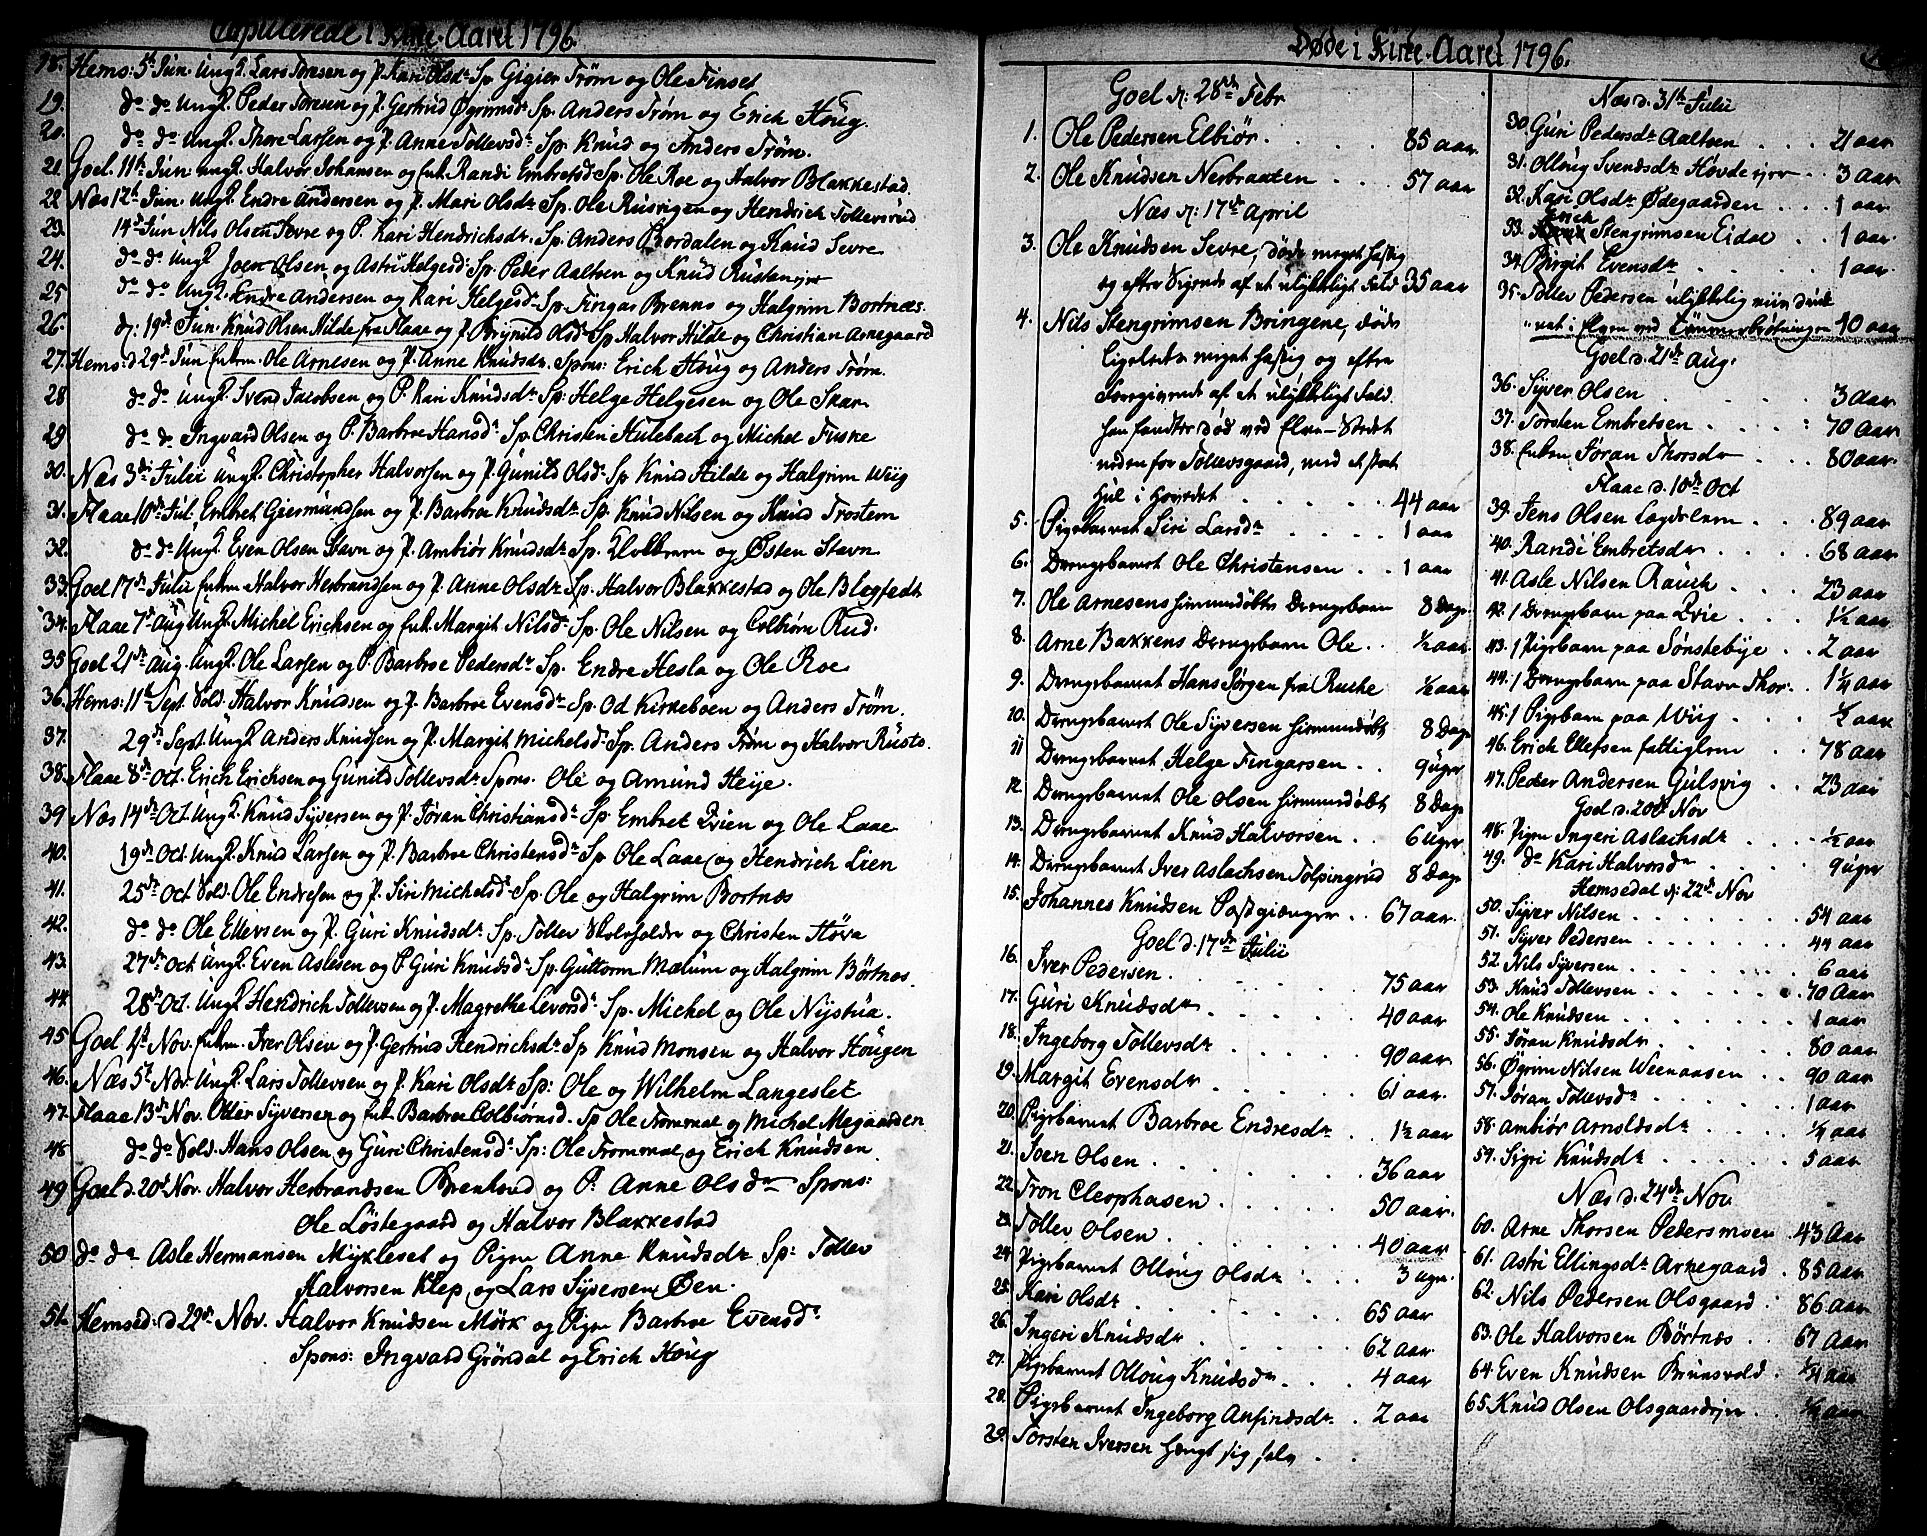 Copulerede i Kirke-Aaret 1796.
18. Hems: 5t Jun. Ungk. Lars Tomesen og P. Kari Olsdr Sp. Gigier Trøm og Ole Finset
19. do do Ungk. Peder Toresen og P. Gertrud Øgrimsdr Sp. Anders Trøm og Erich Houg.
20. do do Ungk. Thore Larsen og P. Anne Tollevsdr Sp. Knud og Anders Trøm.
21. Goel. 11te Jun. ungk. Halvor Johansen og Enk. Randi Embretsd. Sp. Ole Roe og Halvor Blakkestad.
22. Næs 12te Jun. Ungk. Endre Andersen og P. Mari Olsdr Sp. Ole Rusvigen og Hendrich Tollevsrud
23. 14de Jun Nils Olsen Sevre og P. Kari Hendrichsdr. Sp. Anders Bordalen og Knud Sevre
24. do do Ungk Joen Olsen og Astri Helgesdr Sp. Peder Aaltsen og Knud Rustan
25 do do Ungk. Endre Andersen og Kari Helgesdr Sp. Fingas Brenno og Halgrim Bortnæs.
26. d: 19de Jun. Knud Olsen Hilde fra Flaae og P. Brynild Olsdr Sp Halvor Hilde og Christian Arnegaard
27. Hems: d 29de Jun Enkem. Ole Arnesen og P. Anne Knudsdr. Spons: Erich Houg og Anders Trøm.
28 do do Ungk. Svend Jacobsen og P. Kari Knudsdr Sp: Helge Helgesen og Ole Skar
29 do do Ingvard Olsen og P. Barbroe Hansdr Sp. Christen Hulebach og Michel Fuske
30. Næs 3die Julii Ungk. Christopher Halvorsen og P. Gunild Olsdr Sp Knud Hilde og Halgrim Wiig
31. Flaae 10de Jul. Embret Giermundsen og P. Barbroe Knudsdr Sp. Knud Nilsen og Knud Trostem
32. do do Ungk. Even Olsen Stavn og P. Ambiør Knudsdr Sp. og Østen Stavn
33. Goel 17de Julii Enkem Halvor Herbrandsen og P. Anne Olsdr Sp. Halvor Blakkestad og Ole Blegfedt
34. Flaae 7de Aug Ungk. Michel Erichsen og Enk. Margit Nilsdr Sp. Ole Nilsen og Colbiørn Rud.
35 Goel 21de Aug. Ungk. Ole Larsen og P. Barbroe Pedersdr Sp. Endre Hesla og Ole Roe
36. Hems: 11te Sept. Sold. Halvor Knudsen og P. Barbroe Evensdr Sp. Od Kirkeboen og Anders Trøm.
37. 29de Sept. Ungk Anders Knudsen og P. Margit Michelsdr Sp. Anders Trøm og Halvor Rusto.
38. Flaae 8de Oct. Erich Erichsen og Gunild Tollevsdr Spons. Ole og Amund Heije.
39 Næs 14de Oct. Ungk. Knud Syversen og P. Jøran Christiansdr Sp. Embret Qvien og Ole Laae
40. 19de Oct. Ungk. Knud Larsen og P. Barbroe Christensdr Sp Ole Laae og Hendrich Lien
41. 25de Oct Sold. Ole Endresen og P. Siri Michelsdr Sp. Ole og Halgrim Bortnæs
42. do do Ole Ellevsen og P. Guri Knudsdr Sp. Tollev og Christen Høva
43. 27de Oct Ungk. Even Aslesen og P. Guri Knudsd. Sp. Guttorm Mælum og Halgrim Børtnes.
44. 28de Oct. Ungk. Hendrich Tollevsen og P. Magrethe Levorsdr Sp. Michel og Ole Nijstua.
45 Goel 4de Nov. Enkm. Iver Olsen og P. Gertrud Hendrichsdr Sp Knud Monsen og Halvor Hougen
46. Næs 5t Nov. Ungk. Lars Tollevsen og P. Kari Olsdr Sp: Ole og Wilhelm Langeslet
47. Flaae 13de Nov. Otter Syversen og Enk. Barbroe Colbiornsd. Sp Ole Trommal og Michel Megaarden
48 do do Sold. Hans Olsen og Guri Christensdr Sp: Ole Trommal og Erich Knudsen
49 Goel d. 20t Nov. Halvor Herbrandsen Brenhud og P. Anne Olsdr Spons:
Ole Løstegaard og Halvor Blakkestad
50 do do Asle Hermansen Mykleset og Pige Anne Knudsdr Sp: Tollev
Halvorsen Klep og Lars Syversen Øen.
51. Hemsed: d 22de Nov. Halvor Knudsen Mørk og Pige Barbroe Evensdr
Spons: Ingvard Grøndal og Erich Houg
Døde i Kirke-Aaret 1796.
Goel d: 28de Febr
1. Ole Pedersen Elbiør. 85 aar
2. Ole Knudsen Nerbraaten 57 aar
Næs d: 17de April
3. Ole Knudsen Sevre, døde meget hastig
og efter Sigende af et ulykkeligt Fald 35 aar
4. Nils Stengrimsen Bringene, døde
ligeledes meget hastig og efter
Foregivende af et ulykkeligt Fald.
han fandtes død ved Elve-Bredet
neden for Tollevsgaard, med et stort
Hul i Hovedet 44 aar
5. Pigebarnet Siri Larsdr 1 aar
6. Drengebarnet Ole Christensen 1 aar
7. Ole Arnesens hiemmedøbte Drengebarn 8 Dage
8. Arne Bakkens Drengebarn Ole 1/2 aar
9. Drengebarnet Hans Jørgen fra Ruske 1/2 aar
10. Drengebarnet Ole Syversen hiemmedøbt 8 Dage
11 Drengebarnet Helge Fingarsen 9 uger
12. Drengebarnet Ole Olsen hiemmedøbt 8 Dage
13. Drengebarnet Knud Halvorsen 6 uger
14. Drengebarnet Iver Aslachsen Tolpingrud 8 Dage
15. Johannes Knudsen Postgiænger 67 aar.
Goel d. 17de Julii
16. Iver Pedersen 75 aar
17. Guri Knudsdr 40 aar
18. Ingeborg Tollevsdr 90 aar
19. Margit Evensdr 61 aar.
20. Pigebarnet Barbroe Endresdr 1 1/2 aar
21. Joen Olsen 36 aar
22. Tron Cleophasen 50 aar.
23. Tollev Olsen 40 aar
24 Pigebarnet Olloug Olsdr 3 uger.
25. Kari Olsdr 65 aar
26. Ingeri Knudsdr 62 aar
27. Pigebarnet Olloug Knudsdr 4 aar
28. Pigebarnet Ingeborg Anfindsdr 2 aar
29. Torsten Iversen hængt sig selv
Næs d. 31te Julii
30. Guri Pedersdr Aaltsen 21 aar
31. Olloug Svendsdr Hovde 3 aar
32. Kari Olsdr Ødegaarden 1 aar
33. Erich Stengrimsen Eidal 1 aar
34. Birgit Evensdr 1 aar
35. Tollev Pedersen ulykkelig
i Elven ved Tømmerbrøtningen 40 aar
Goel d. 21de Aug.
36. Syver Olsen 3 aar
37. Torsten Embretsen 70 aar
38. Enken Jøran Thorsdr 80 aar.
Flaae d. 10de Oct
39. Jens Olsen Lægdelem 89 aar
40. Randi Embretsdr 68 aar
41. Asle Nilsen Rauk 23 aar
42. 1 Drengebarn paa Qvie 1 1/2 aar
43. 1 Pigebarn paa Sønstebye 2 aar
44. 1 Drengebarn paa Stavn Thor 1 1/4 aar
45. 1 Pigebarn paa Wiig 1/2 aar
46. Erich Ellefsen fattiglem 78 aar
47. Peder Andersen Gulsvig 23 aar
Goel d. 20de Nov
48. Pigen Ingeri Aslachsdr 1/2 aar
49. do Kari Halvorsdr 9 uger
Hemsedal d: 22de Nov
50. Syver Nilsen 54 aar
51. Syver Pedersen 44 aar
52. Nils Syversen 6 aar
53. Knud Tollevsen 70 aar
54. Ole Knudsen 1 aar
55. Jøran Knudsdr 80 aar
56. Øgrim Nilsen Weenaasen 90 aar
57. Jøran Tollevsdr 1 aar
58. Ambiør Arnoldsdr 1/4 aar
59. Sigri Knudsdr 5 aar
Næs d. 24de Nov
60. Arne Thorsen Pedersmoen 43 aar
61. Astri Ellingsdr Arnegaard 85 aar
62. Nils Pedersen Olsgaard 86 aar
63. Ole Halvorsen Børtnæs 67 aar
64 Even Knudsen Brunsvold 1/4 aar
65 Knud Olsen Olsgaard 1/2 aar